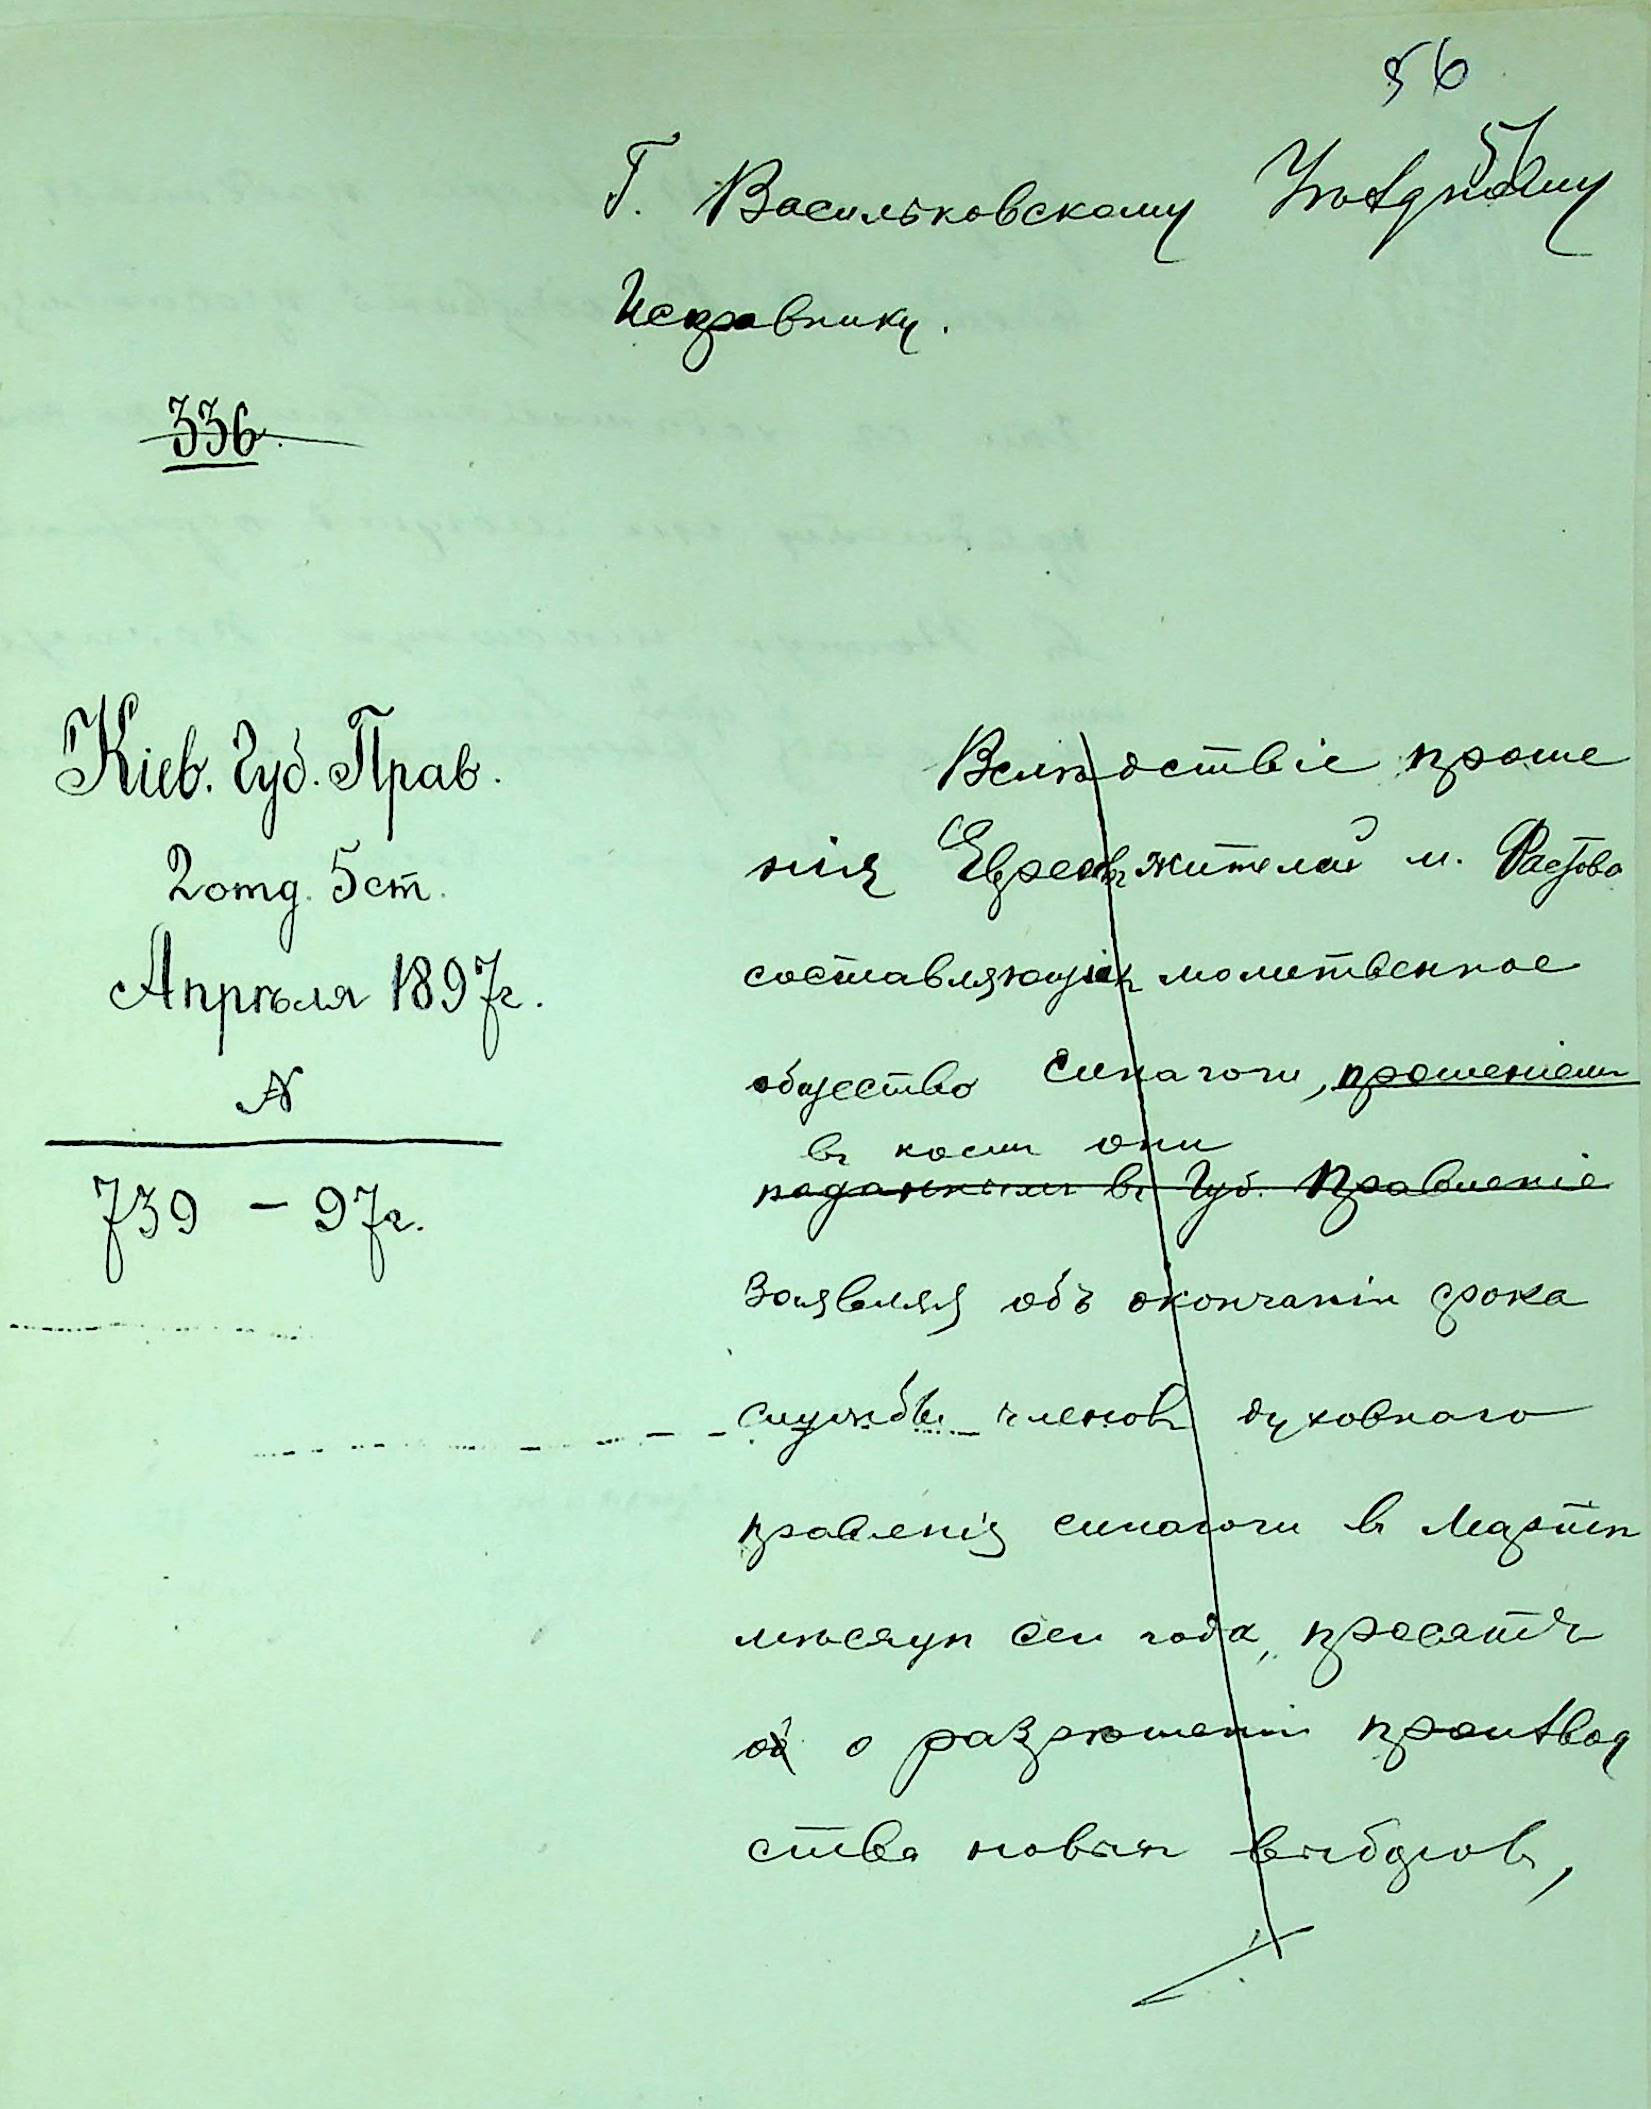 56
56
Г. Васильковскому Уѣздному
Исправнику.
336
Кіев. Губ. Прав.
2 отд. 5 ст.
Апрѣля 1897 г.
№
739 – 97 г.
Вслѣдствіе проше
нія Евреевъ жителей м. Фастова
составляющихъ молитвенное
общество синагоги, прошеніемъ
въ коемъ они
поданнымъ въ Губ. Правленіе
заявляя объ окончаніи срока
службы членовъ духовнаго
правленія синагоги въ Мартѣ
мѣсяцѣ сего года, просятъ
об о разрѣшеніи производ
ства новыхъ выборовъ,